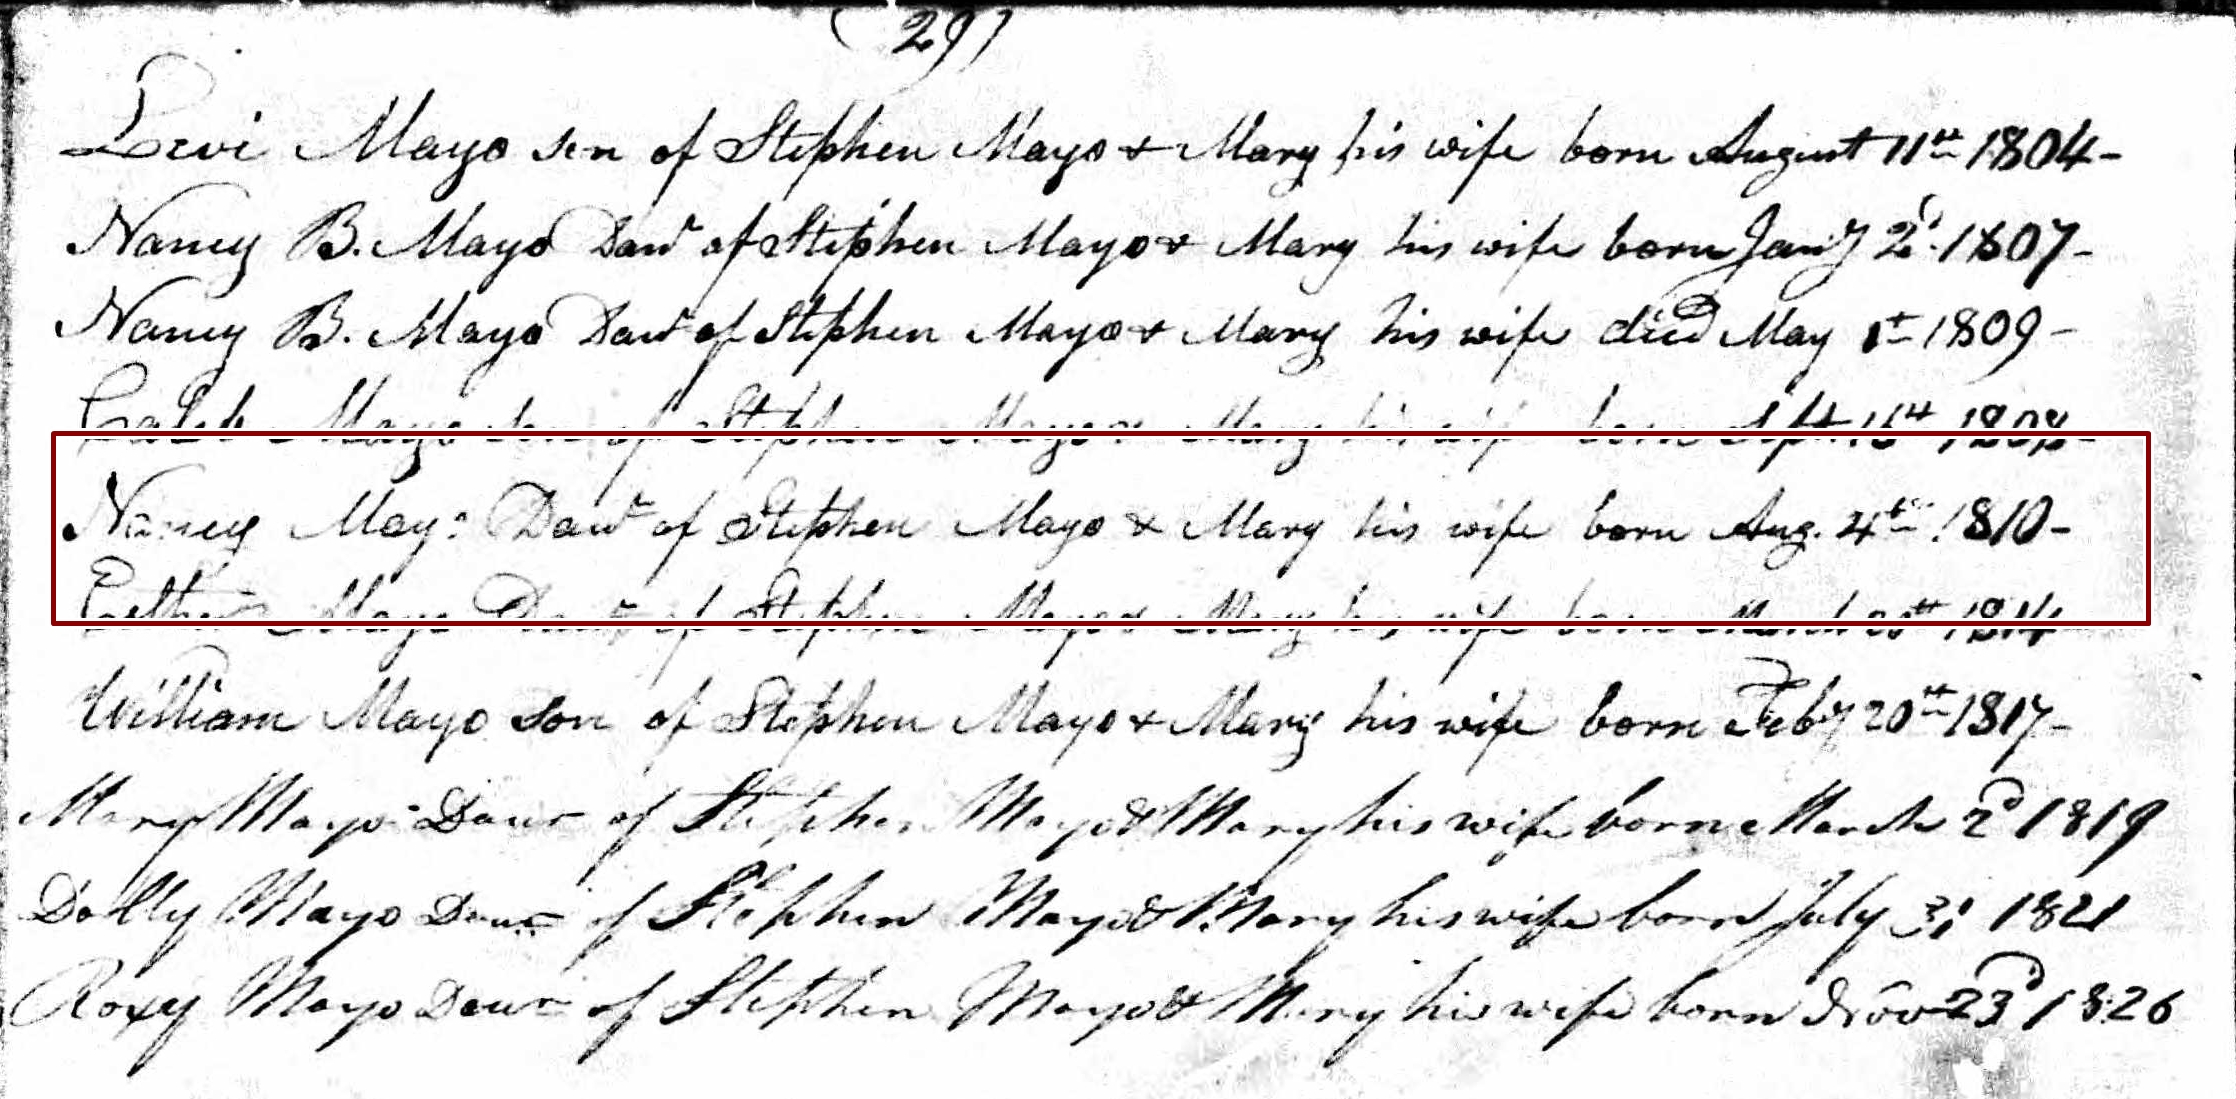 (29)
Levi Mayo son of Stephen Mayo & Mary his wife born August 11th 1804-
Nancy B. Mayo Daur of Stephen Mayo & Mary his wife born Jany 2d 1807-
Nancy B. Mayo Daur of Stephen Mayo & Mary his wife died May 1st 1809-
Caleb Mayo son of Stephen Mayo & Mary his wife born Sept 1808-
Nancy Mayo Daur of Stephen Mayo & Mary his wife born Aug. 4th 1810-
Esther Mayo Daur of Stephen Mayo & Mary his wife born March 1814
William Mayo son of Stephen Mayo & Mary his wife born Feby 20th 1817-
Mary Mayo Daur of Stephen Mayo & Mary his wife born March 2d 1819
Dolly Mayo Daur of Stephen Mayo & Mary his wife born July 31 1821
Roxy Mayo Daur of Stephen Mayo & Mary his wife born Nov 23d 1826